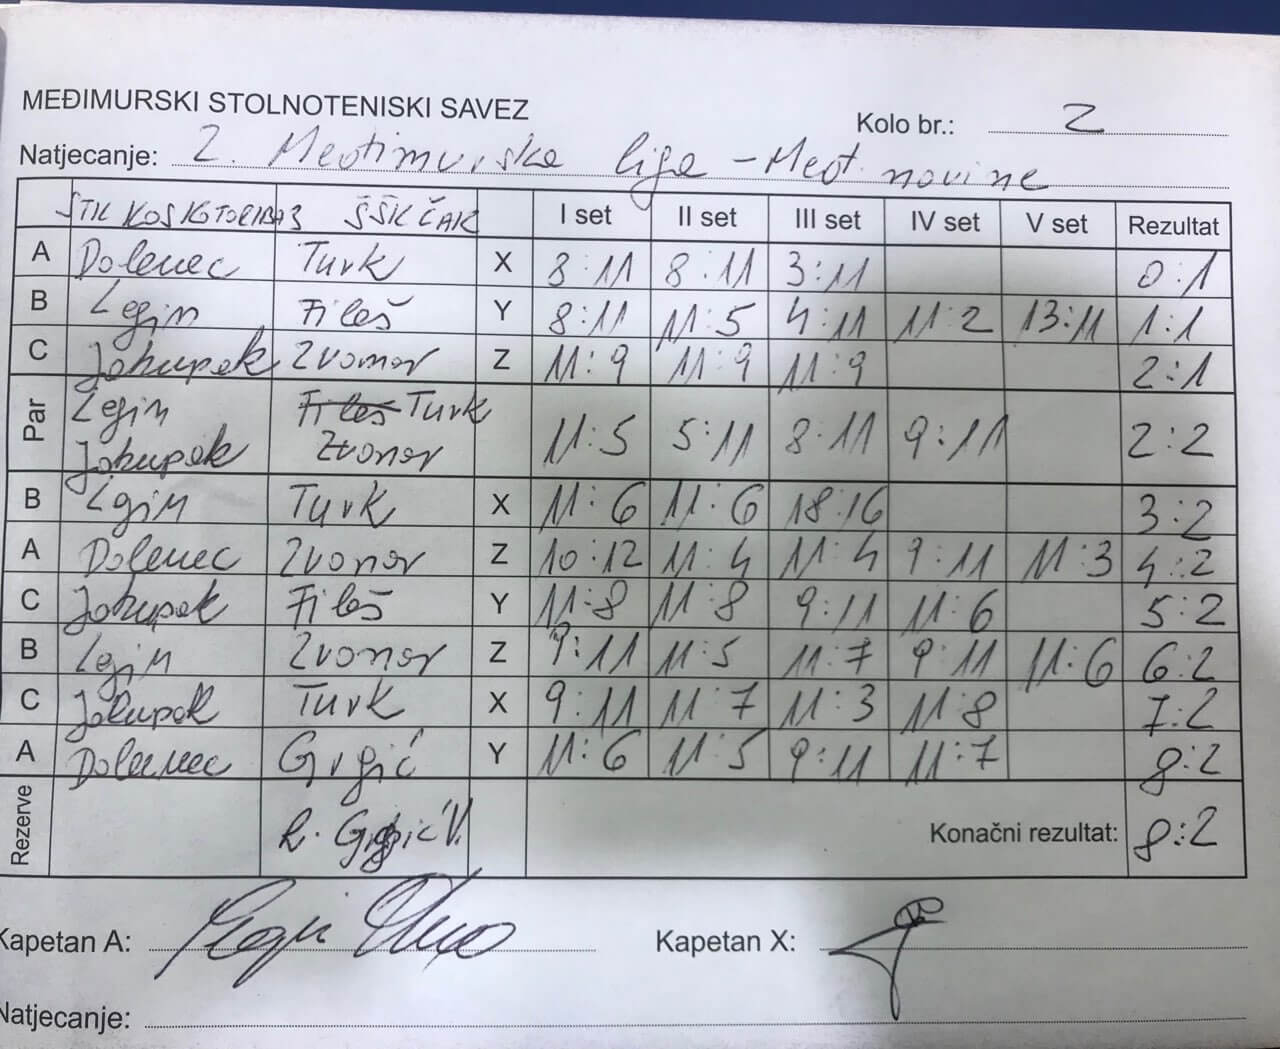 MEĐIMURSKI STOLNOTENISKI SAVEZ
Kolo br.: 2
Natjecanje: 2. Međimurska liga - Međ. novine
STK KOS KOTORIBA 3 ŠŠK ČAK I set II set III set IV set V set Rezultat
A Dolenec Turk X 8:11 8:11 3:11 0:1
B Legin Fileš Y 8:11 11:5 4:11 11:2 13:11 1:1
C Jakupak Zvonar Z 11:9 11:9 11:9 2:1
Par Legin Fileš Turk
Jakupak Zvonar 11:5 5:11 8:11 9:11 2:2
B Legin Turk X 11:6 11:6 18:16 3:2
A Dolenec Zvonar Z 10:12 11:4 11:4 9:11 11:3 4:2
C Jakupak Fileš Y 11:8 11:8 9:11 11:6 5:2
B Legin Zvonar Z 9:11 11:5 11:7 9:11 11:6 6:2
C Jakupak Turk X 9:11 11:7 11:3 11:8 7:2
A Dolenec Grgić Y 11:6 11:5 9:11 11:7 8:2
Rezerve R. Grgić V. Konačni rezultat: 8:2
Kapetan A: Kapetan X:
Natjecanje: